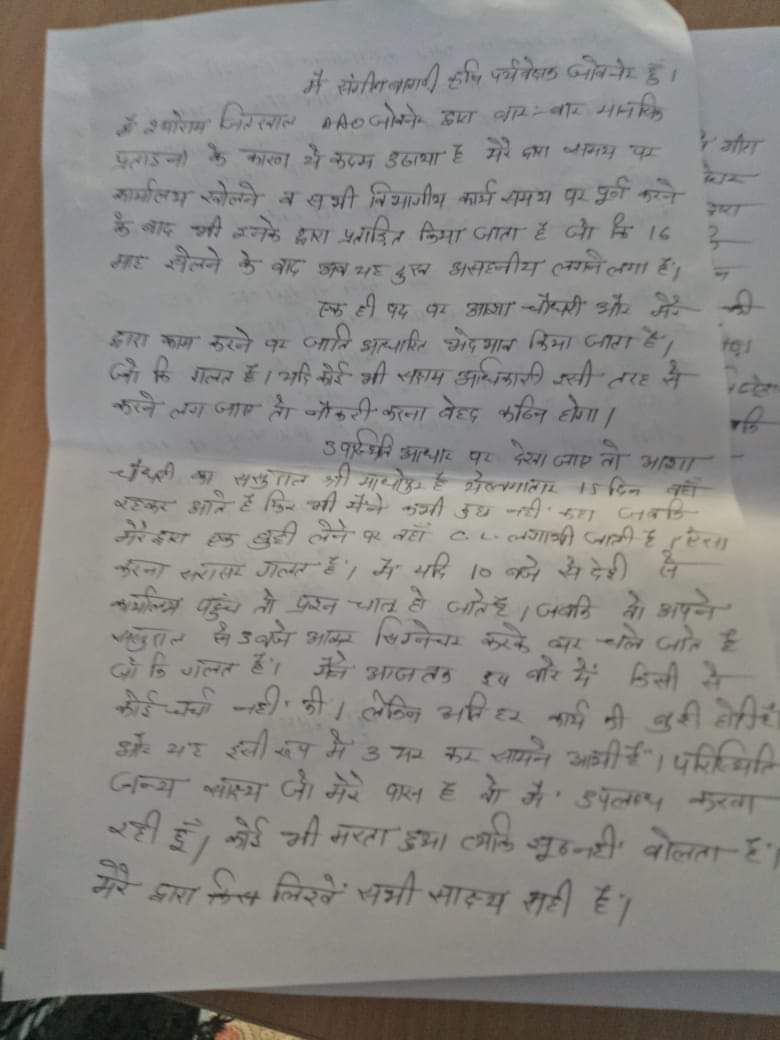 मैं संगीता कृषि पर्यवेक्षक जोबनेर हूँ।
में जितरवाल AAO जोबनेर द्वारा बार-बार मानसिक
प्रताडना के कारण ये कदम उठाया है मेरे द्वारा समय पर
कार्यालय खोलने व सभी विभागीय कार्य समय पर पूर्ण करने
के बाद भी इनके द्वारा प्रताडित किया जाता है जो कि 16
माह झेलने के बाद अब यह दुख असहनीय लगने लगा है।
एक ही पद पर आशा चौधरी और मेरे
द्वारा काम करने पर जाति आधारित भेदभाव किया जाता है।
जो कि गलत है। यदि कोई भी सक्षम अधिकारी इसी तरह से
करने लग जाए तो नौकरी करना बेहद कठिन होगा।
उपस्थिति आधार पर देखा जाए तो आशा
चौधरी का ससुराल श्री माधोपुर है ये लगातार 15 दिन वहाँ
रहकर आते है फिर भी मैंने कभी कुछ नहीं कहा जबकि
मेरे द्वारा एक छुट्टी लेने पर वहाँ C.L. लगायी जाती है ऐसा
करना सरासर गलत है। में यदि 10 बजे से देरी से
कार्यालय पहुंच तो प्रश्न चालू हो जाते है। जबकि वो अपने
ससुराल से 3 बजे आकर सिग्नेचर करके घर चले जाते है
जो कि गलत है। मैंने आज तक इस बारे में किसी से
कोई चर्चा नहीं की। लेकिन अति हर कार्य की बुरी होती है
और यह इसी रूप में उभर कर सामने आयी है। परिस्थिति
जन्य साक्ष्य जो मेरे पास है वो में उपलब्ध करवा
रही हूँ। कोई भी मरता हुआ व्यक्ति झूठ नहीं बोलता है।
मेरे द्वारा लिखें सभी साक्ष्य सही है।